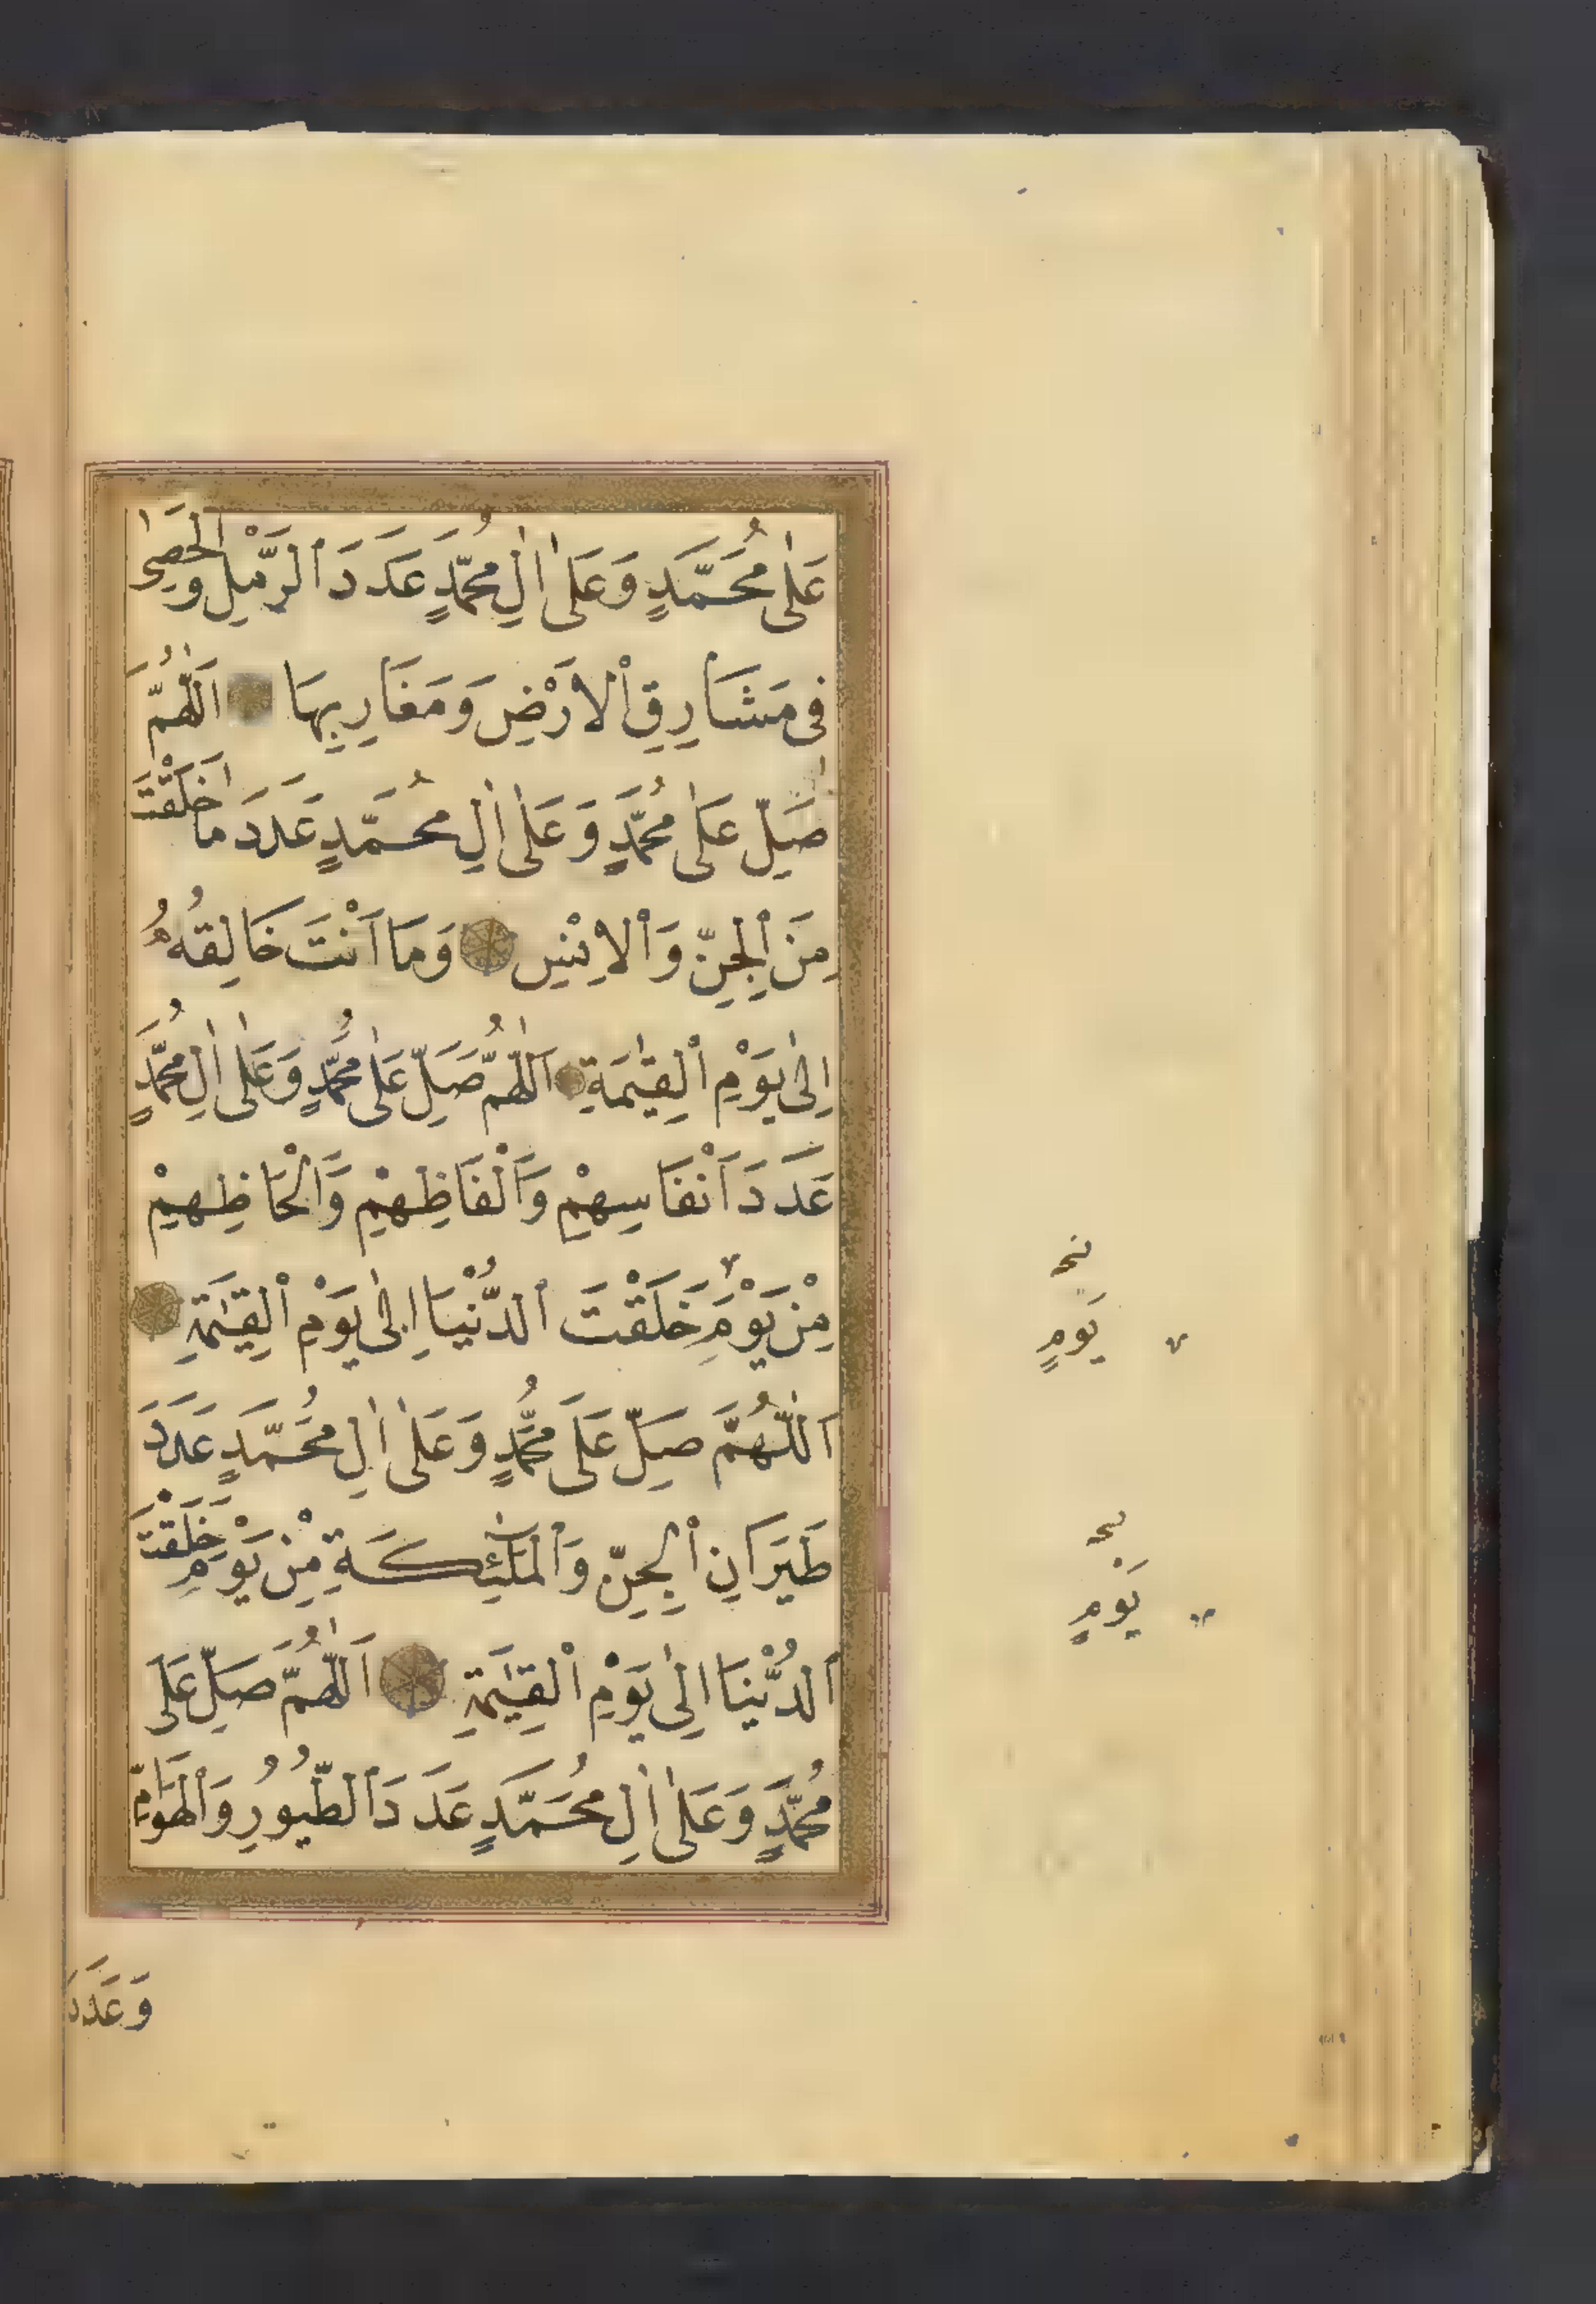 عَلٰى مُحَمَّدٍ وَعَلٰى اٰلِ مُحَمَّدٍ عَدَدَ ٱلرَّمْلِ وَالْحَصٰى
فِى مَشَارِقِ ٱلْاَرْضِ وَمَغَارِبِهَا اَللّٰهُمَّ
صَلِّ عَلٰى مُحَمَّدٍ وَعَلٰى اٰلِ مُحَمَّدٍ عَدَدَ مَا خَلَقْتَ
مِنَ ٱلْجِنِّ وَٱلْاِنْسِ وَمَا اَنْتَ خَالِقُهُ
اِلٰى يَوْمِ ٱلْقِيٰمَةِ اَللّٰهُمَّ صَلِّ عَلٰى مُحَمَّدٍ وَعَلٰى اٰلِ مُحَمَّدٍ
عَدَدَ اَنْفَاسِهِمْ وَاَلْفَاظِهِمْ وَاَلْحَاظِهِمْ
مِنْ يَوْمَِ خَلَقْتَ ٱلدُّنْيَا اِلٰى يَوْمِ ٱلْقِيٰمَةِ
اَللّٰهُمَّ صَلِّ عَلَى مُحَمَّدٍ وَعَلٰى اٰلِ مُحَمَّدٍ عَدَدَ
طَيَرَانِ ٱلْجِنِّ وَٱلْمَلٰئِكَةِ مِنْ يَوْمِ خَلَقْتَ
ٱلدُّنْيَا اِلٰى يَوْمِ ٱلْقِيٰمَةِ اَللّٰهُمَّ صَلِّ عَلَى
مُحَمَّدٍ وَعَلٰى اٰلِ مُحَمَّدٍ عَدَدَ ٱلطُّيُورِ وَٱلْهَوَامِّ
وَعَدَدَ
يَوْمٍ
يَوْمٍ